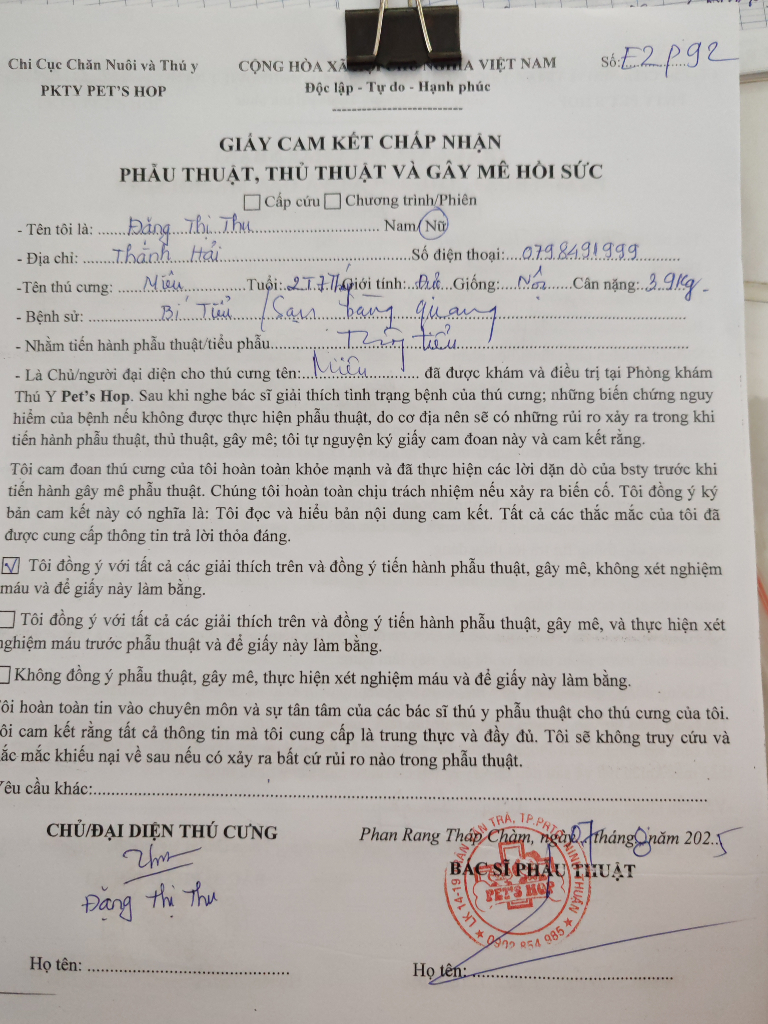 Chi Cục Chăn Nuôi và Thú y
PKTY PET'S HOP
CỘNG HÒA XÃ NGHĨA VIỆT NAM
Độc lập - Tự do - Hạnh phúc
Số: E2P92
GIẤY CAM KẾT CHẤP NHẬN
PHẪU THUẬT, THỦ THUẬT VÀ GÂY MÊ HỒI SỨC
Cấp cứu Chương trình/Phiên
- Tên tôi là: Đặng Thị Thu Nam/Nữ
- Địa chỉ: Thánh Hải Số điện thoại: 0798491999
-Tên thú cưng: Miêu Tuổi: 2T77 Giới tính: Đực Giống: Nội Cân nặng: 3.9kg
- Bệnh sử: Bí Tiểu / Sạn bàng quang
- Nhằm tiến hành phẫu thuật/tiểu phẫu Thông tiểu
- Là Chủ/người đại diện cho thú cưng tên: Miêu đã được khám và điều trị tại Phòng khám
Thú Y Pet's Hop. Sau khi nghe bác sĩ giải thích tình trạng bệnh của thú cưng; những biến chứng nguy
hiểm của bệnh nếu không được thực hiện phẫu thuật, do cơ địa nên sẽ có những rủi ro xảy ra trong khi
tiến hành phẫu thuật, thủ thuật, gây mê; tôi tự nguyện ký giấy cam đoan này và cam kết rằng.
Tôi cam đoan thú cưng của tôi hoàn toàn khỏe mạnh và đã thực hiện các lời dặn dò của bsty trước khi
tiến hành gây mê phẫu thuật. Chúng tôi hoàn toàn chịu trách nhiệm nếu xảy ra biến cố. Tôi đồng ý ký
bản cam kết này có nghĩa là: Tôi đọc và hiểu bản nội dung cam kết. Tất cả các thắc mắc của tôi đã
được cung cấp thông tin trả lời thỏa đáng.
Tôi đồng ý với tất cả các giải thích trên và đồng ý tiến hành phẫu thuật, gây mê, không xét nghiệm
máu và để giấy này làm bằng.
Tôi đồng ý với tất cả các giải thích trên và đồng ý tiến hành phẫu thuật, gây mê, và thực hiện xét
nghiệm máu trước phẫu thuật và để giấy này làm bằng.
Không đồng ý phẫu thuật, gây mê, thực hiện xét nghiệm máu và để giấy này làm bằng.
Tôi hoàn toàn tin vào chuyên môn và sự tân tâm của các bác sĩ thú y phẫu thuật cho thú cưng của tôi.
Tôi cam kết rằng tất cả thông tin mà tôi cung cấp là trung thực và đầy đủ. Tôi sẽ không truy cứu và
thắc mắc khiếu nại về sau nếu có xảy ra bất cứ rủi ro nào trong phẫu thuật.
Yêu cầu khác:
CHỦ/ĐẠI DIỆN THÚ CƯNG
Thu
Đặng Thị Thu
Họ tên:
Phan Rang Tháp Chàm, ngày 07 tháng 8 năm 2025
BÁC SĨ PHẪU THUẬT
LK 14-19 TRẦN VĂN TRÀ, TP.PRTC NINH THUẬN
PET'S HOP
0902 854 985
Họ tên: